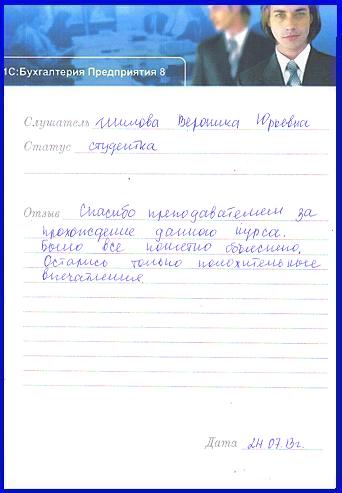 1С:Бухгалтерия Предприятия 8
Слушатель Шилова Вероника Юрьевна
Статус студентка
Отзыв Спасибо преподавателем за
прохождение данного курса.
Было все понятно объяснено.
Остались только положительные
впечатления.
Дата 24.07.13г.